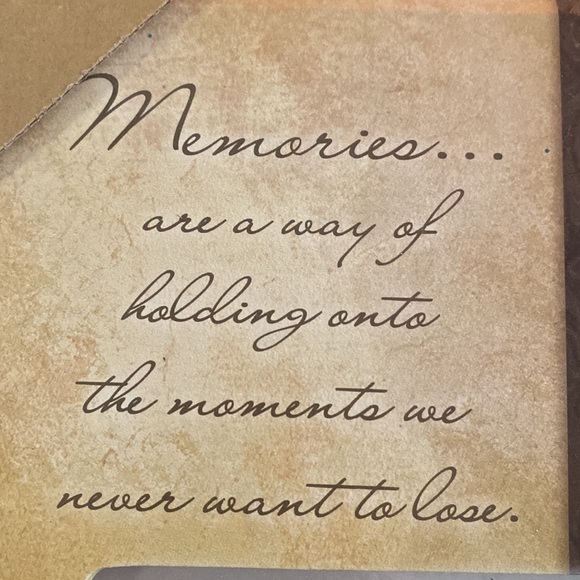 Memories...
are a way of
holding onto
the moments we
never want to lose.